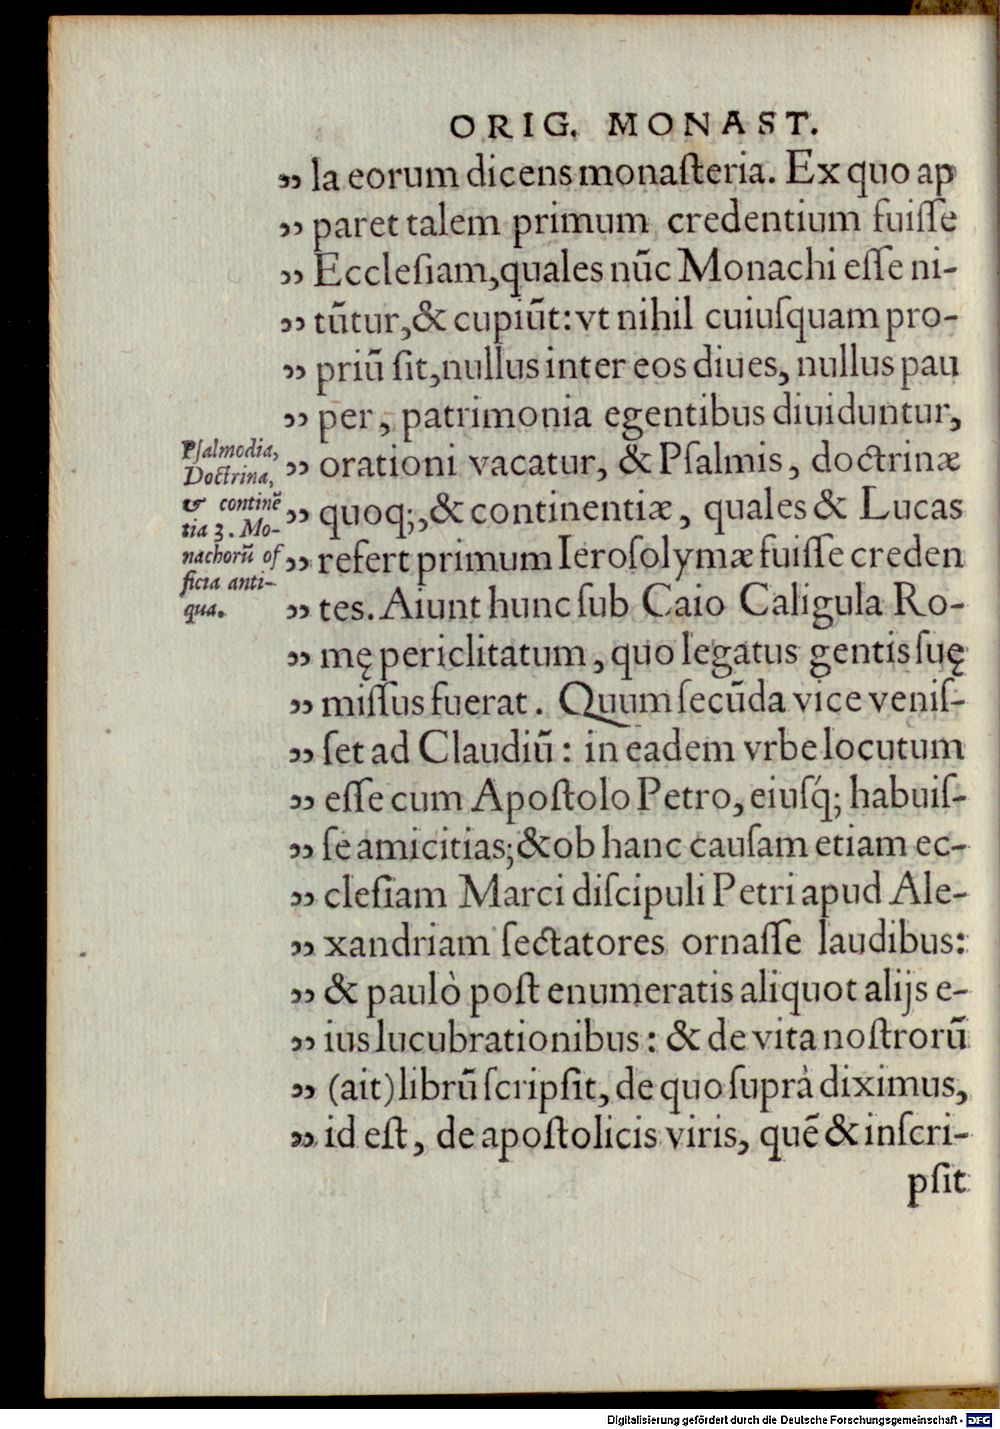 ORIG. MONAST.
„ la eorum dicens monaſteria. Ex quo ap
„ paret talem primum credentium fuiſſe
„ Eccleſiam, quales nũc Monachi eſſe ni-
„ tũtur, & cupiũt: vt nihil cuiuſquam pro-
„ priũ ſit, nullus inter eos diues, nullus pau
„ per, patrimonia egentibus diuiduntur,
„ orationi vacatur, & Pſalmis, doctrinæ
„ quoq;, & continentiæ, quales & Lucas
„ refert primum Ieroſolymæ fuiſſe creden
„ tes. Aiunt hunc ſub Caio Caligula Ro-
„ mę periclitatum, quo legatus gentis ſuę
„ miſſus fuerat. Quum ſecũda vice veniſ-
„ ſet ad Claudiũ: in eadem vrbe locutum
„ eſſe cum Apoſtolo Petro, eiuſq́; habuiſ-
„ ſe amicitias; & ob hanc cauſam etiam ec-
„ cleſiam Marci diſcipuli Petri apud Ale-
„ xandriam ſectatores ornaſſe laudibus:
„ & paulò poſt enumeratis aliquot alijs e-
„ ius lucubrationibus: & de vita noſtrorũ
„ (ait) librũ ſcripſit, de quo ſuprà diximus,
„ id eſt, de apoſtolicis viris, quẽ & inſcri-
pſit
Pſalmodia,
Doctrina,
& continẽ
tia 3. Mo-
nachorũ of
ficia anti-
qua.
Digitalisierung gefördert durch die Deutsche Forschungsgemeinschaft - DFG